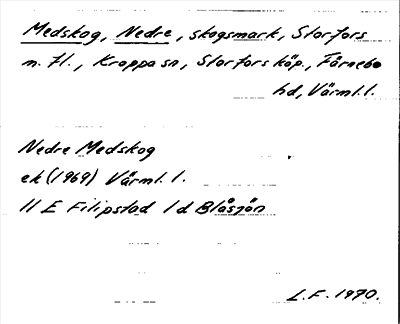 Medskog, Nedre, skogsmark, Storfors
m. fl., Kroppa sn, Storfors köp., Färnebo
hd, Värml. l.
Nedre Medskog
ek (1969) Värml. l.
11 E Filipstad 1d Blåsjön
L.F. 1970.